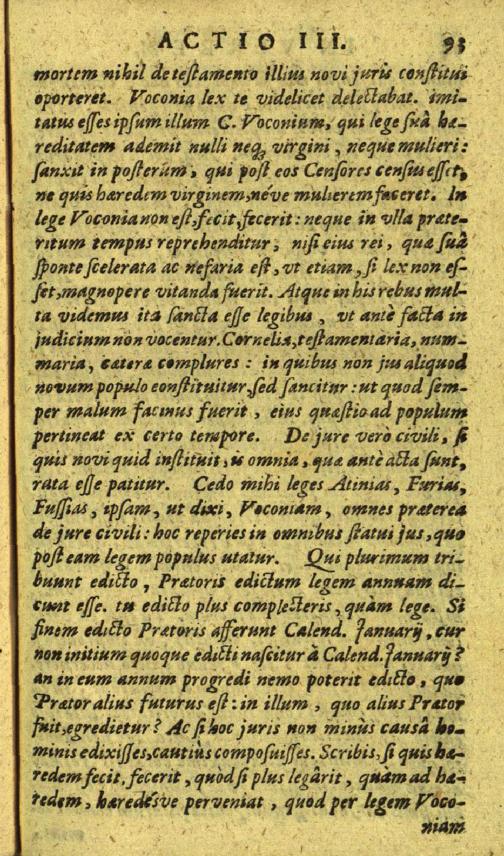 ACTIO III. 93
mortem nihil de testamento illius novi juris constitui
oporteret. Voconia lex te videlicet delectabat. imi-
tatus esses ipsum illum C. Voconium, qui lege suâ hæ-
reditatem ademit nulli neq; virgini, neque mulieri:
sanxit in posterum, qui post eos Censores census esset,
ne quis hæredem virginem, néve mulierem faceret. In
lege Voconia non est, fecit, fecerit: neque in ulla præte-
ritum tempus reprehenditur, nisi eius rei, quæ suâ
sponte scelerata ac nefaria est, vt etiam, si lex non es-
set, magnopere vitanda fuerit. Atque in his rebus mul-
ta videmus ita sancta esse legibus, vt antè facta in
judicium non vocentur. Cornelia, testamentaria, num-
maria, cæteræ complures: in quibus non jus aliquod
novum populo constituitur, sed sancitur: ut quod sem-
per malum facinus fuerit, eius quæstio ad populum
pertineat ex certo tempore. De jure verò civili, si
quis novi quid instituit, is omnia, quæ antè acta sunt,
rata esse patitur. Cedo mihi leges Atinias, Furias,
Fussias, ipsam, ut dixi, Voconiam, omnes præterea
de jure civili: hoc reperies in omnibus statui jus, quo
post eam legem populus utatur. Qui plurimum tri-
buunt edicto, Prætoris edictum legem annuam di-
cunt esse. tu edicto plus complecteris, quàm lege. Si
finem edicto Prætoris afferunt Calend. Januarij, cur
non initium quoque edicti nascitur à Calend. Januarij?
an in eum annum progredi nemo poterit edicto, quo
Prætor alius futurus est: in illum, quo alius Prætor
fuit, egredietur? Ac si hoc juris non minùs causâ ho-
minis edixisses, cautiùs composuisses. Scribis, si quis hæ-
redem fecit, fecerit, quòd si plus legârit, quàm ad hæ-
redem, hæredésve perveniat, quod per legem Voco-
niam